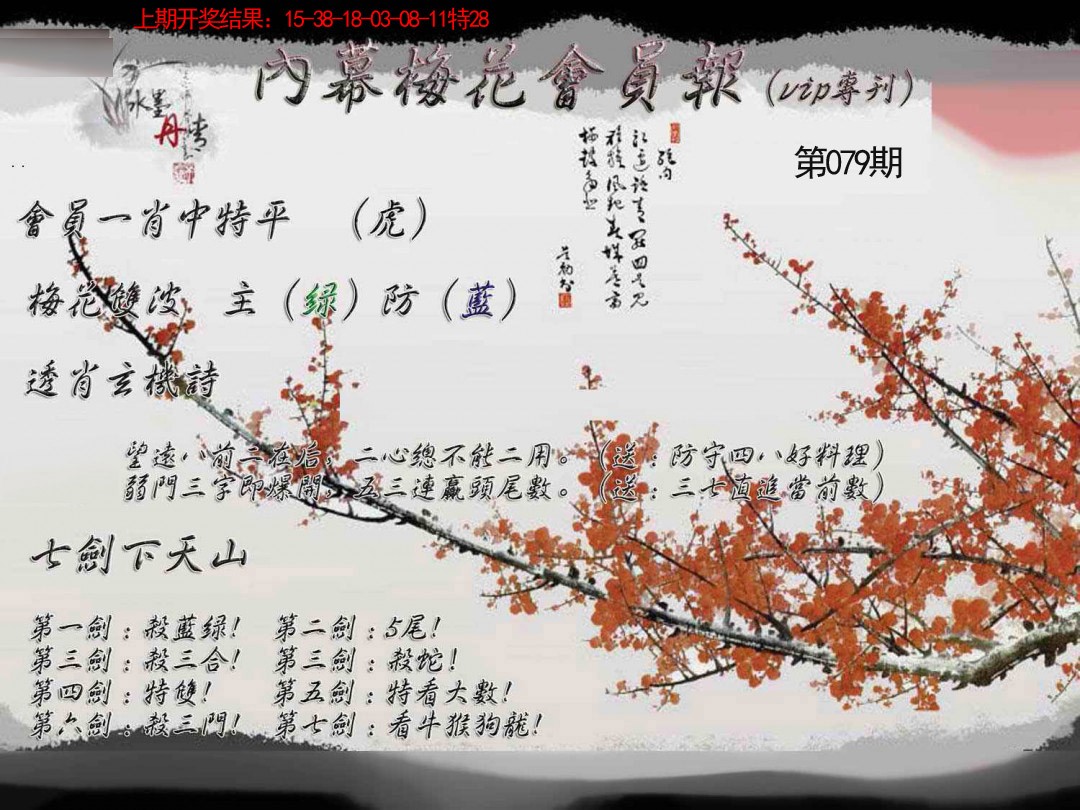 上期开奖结果：15-38-18-03-08-11特28
內幕梅花會員報（vip專刊）
水墨
丹青
第079期
會員一肖中特平　（虎）
梅花雙波　主（绿）防（藍）
透肖玄機詩
望遠八前二在后，二心總不能二用。（送：防守四八好料理）
弱門三字即爆開，五三連贏頭尾數。（送：三七直追當前數）
七劍下天山
第一劍：殺藍绿！　第二劍：5尾！
第三劍：殺三合！　第三劍：殺蛇！
第四劍：特雙！　第五劍：特看大數！
第六劍：殺三門！　第七劍：看牛猴狗龍！